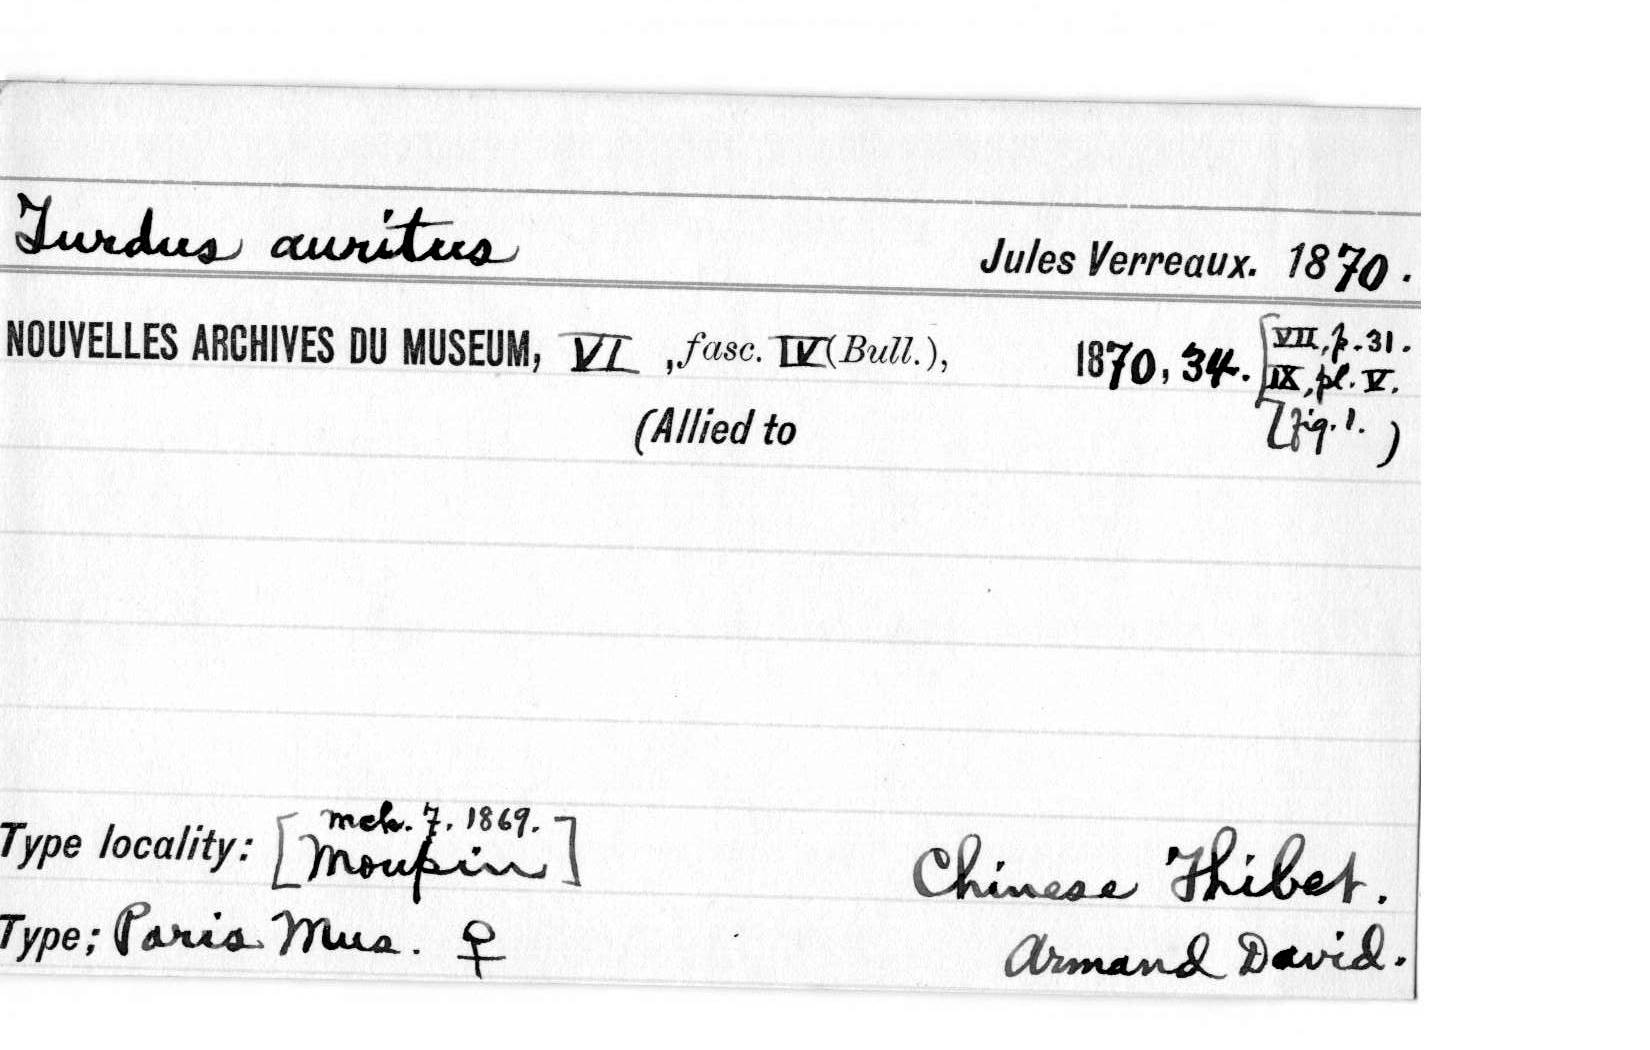 Turdus auritus Jules Verreaux. 1870.
NOUVELLES ARCHIVES DU MUSEUM, VI, fasc. IV (Bull.), 1870, 34. [VII, p. 31.
IX, pl. V.
(Allied to [fig. 1. )
mch. 7. 1869.
Type locality: [Moupin] Chinese Thibet.
Type; Paris Mus. ♀ Armand David.